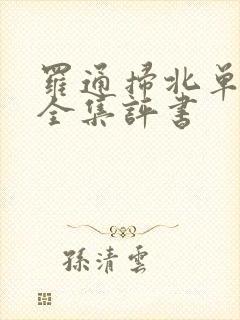 羅通掃北单
全集評書
孫清雲